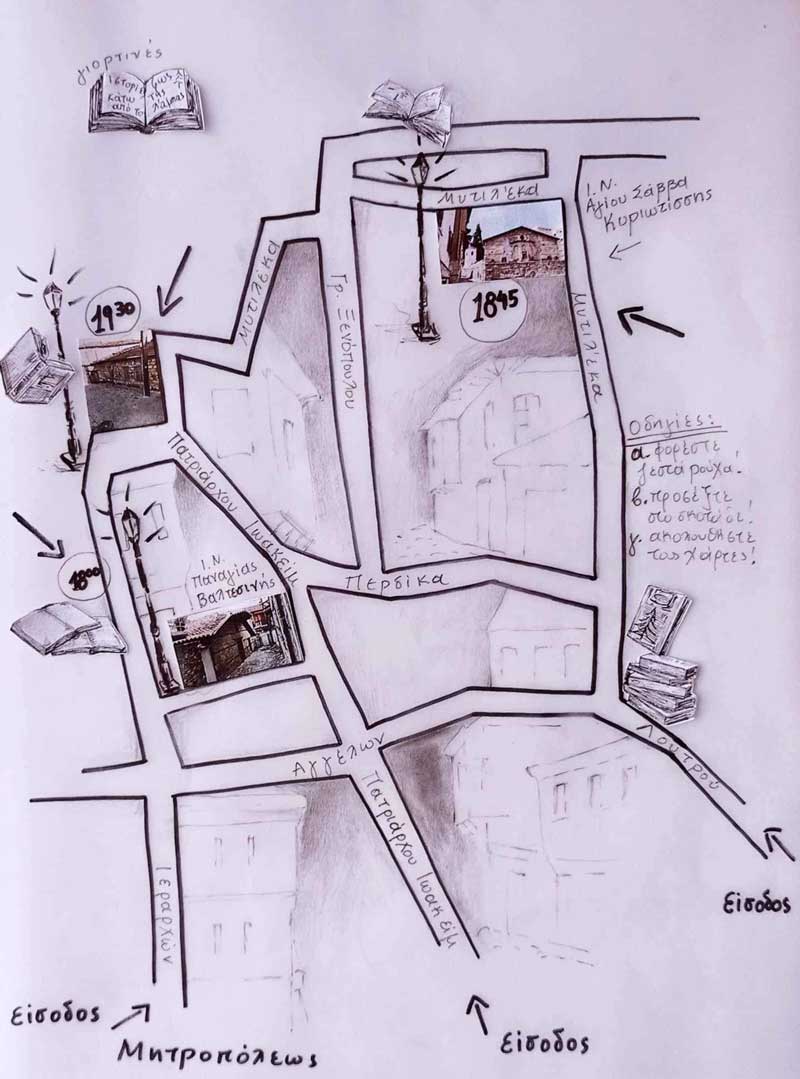 γιορτινές
ιστορίες
κάτω
από το
φως
της
λάμπας
Μυτιλέκα
Ι.Ν.
Αγίου Σάββα
Κυριωτίσσης
Μυτιλέκα
Γρ. Ξενόπουλου
1845
Μυτιλέκα
1930
Οδηγίες:
α. φορέστε
ζεστά ρούχα.
β. προσέξτε
στο σκοτάδι.
γ. ακολουθήστε
τους χάρτες!
Πατριάρχου Ιωακείμ
Ι.Ν.
Παναγίας
Βαλτεσινής
1800
Περδίκα
Αγγέλων
Λουτρού
Πατριάρχου Ιωακείμ
Ιεραρχών
είσοδος
είσοδος
Μητροπόλεως
είσοδος